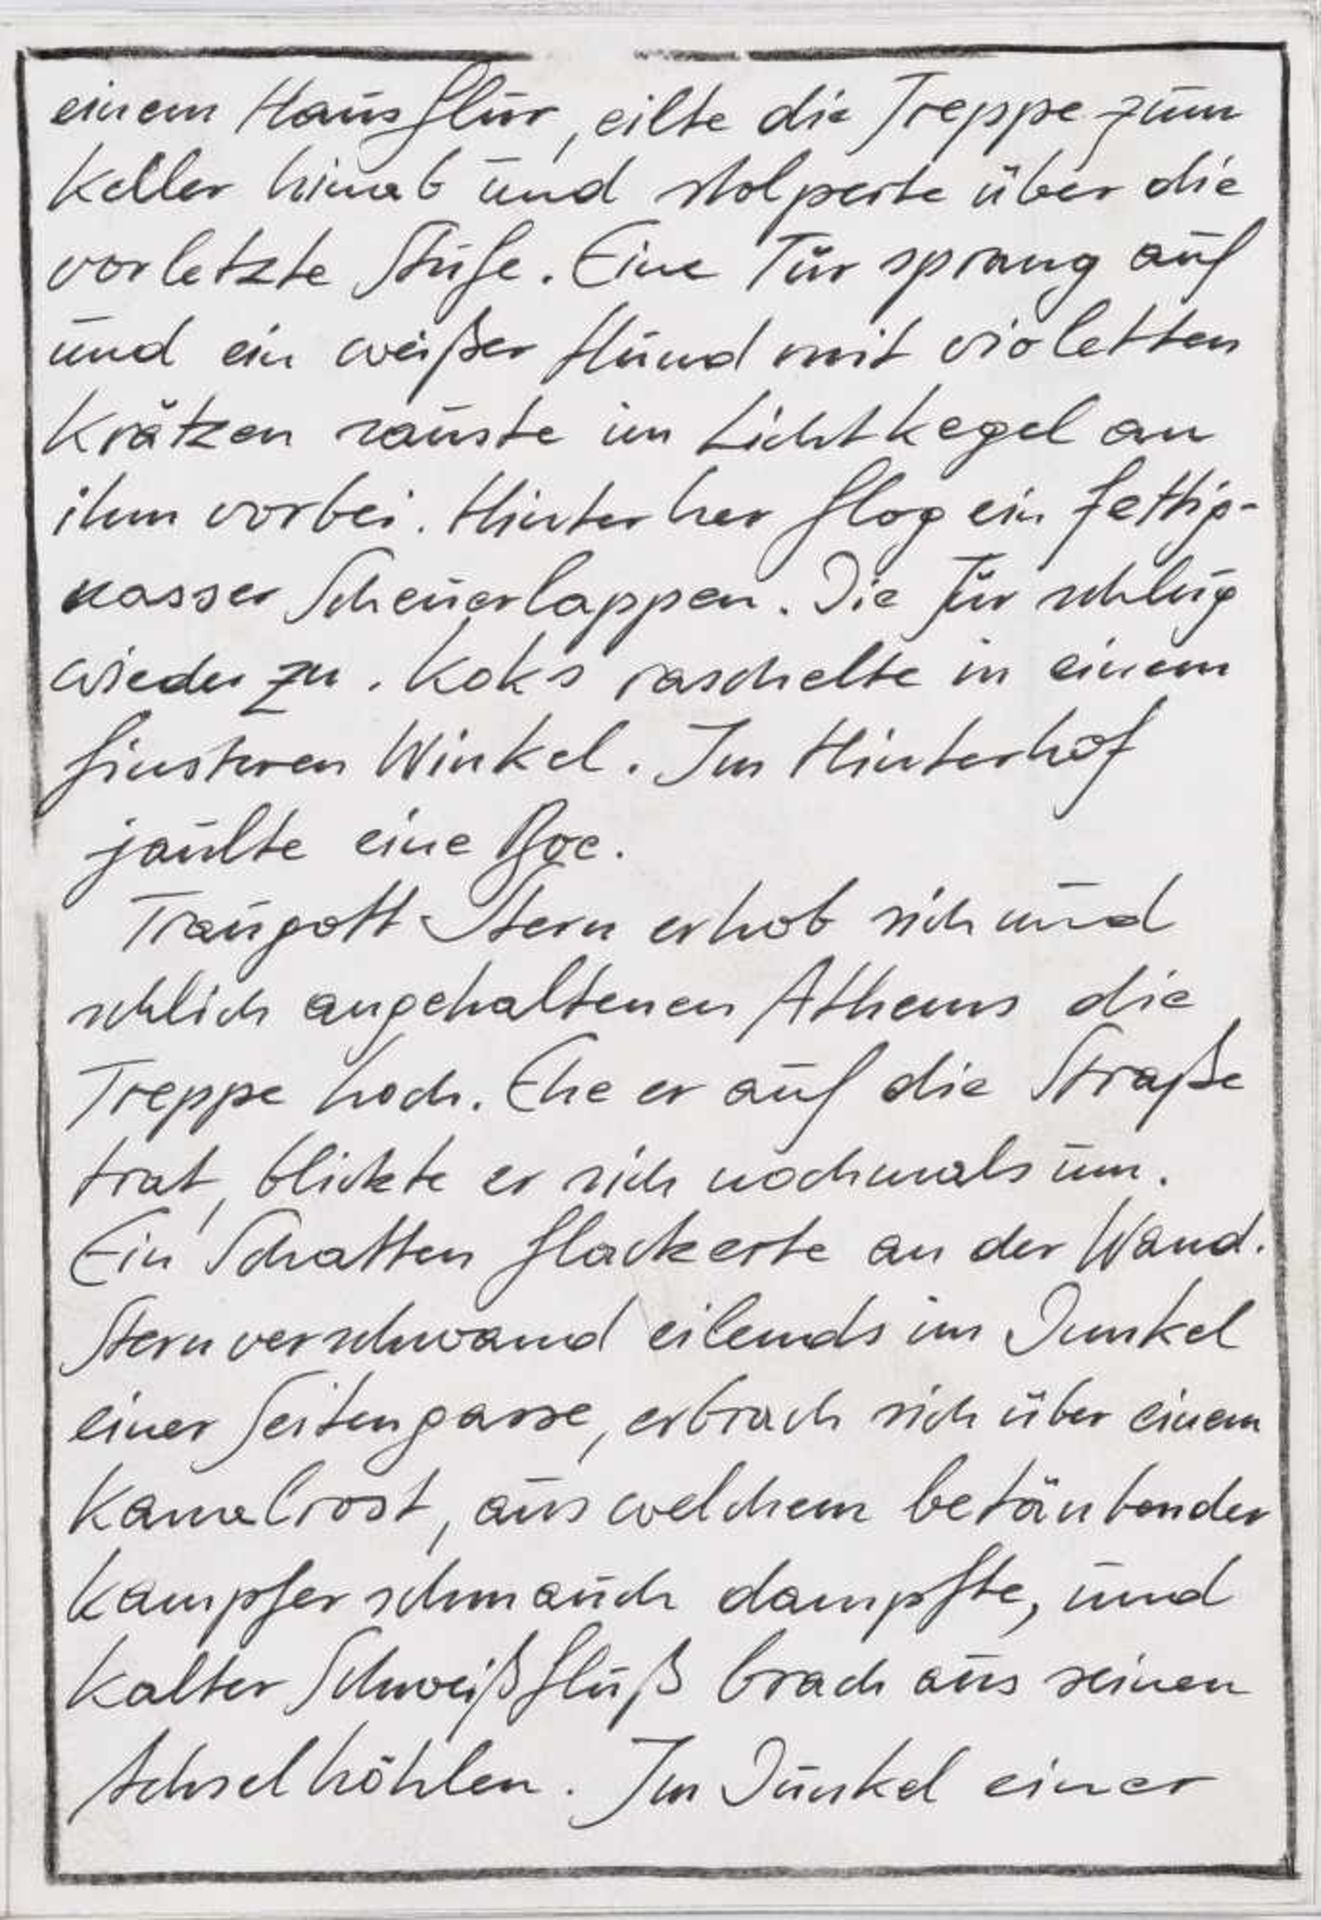 einem Hausflur, eilte die Treppe zum
Keller hinab und stolperte über die
vorletzte Stufe. Eine Tür sprang auf
und ein weißer Hund mit violetten
Krätzen sauste im Lichtkegel an
ihm vorbei. Hinterher flog ein fettig-
nasser Scheuerlappen. Die Tür schlug
wieder zu. Koks raschelte in einem
finsteren Winkel. Im Hinterhof
jaulte eine Boe.
Traugott Stern erhob sich und
schlich angehaltenen Athems die
Treppe hoch. Ehe er auf die Straße
trat, blickte er sich nochmals um.
Ein Schatten flackerte an der Wand.
Stern verschwand eilends im Dunkel
einer Seitengasse, erbrach sich über einem
Kanalrost, aus welchem betäubender
Kampferschmauch dampfte, und
kalter Schweißfluß brach aus seinen
Achselhöhlen. Im Dunkel einer